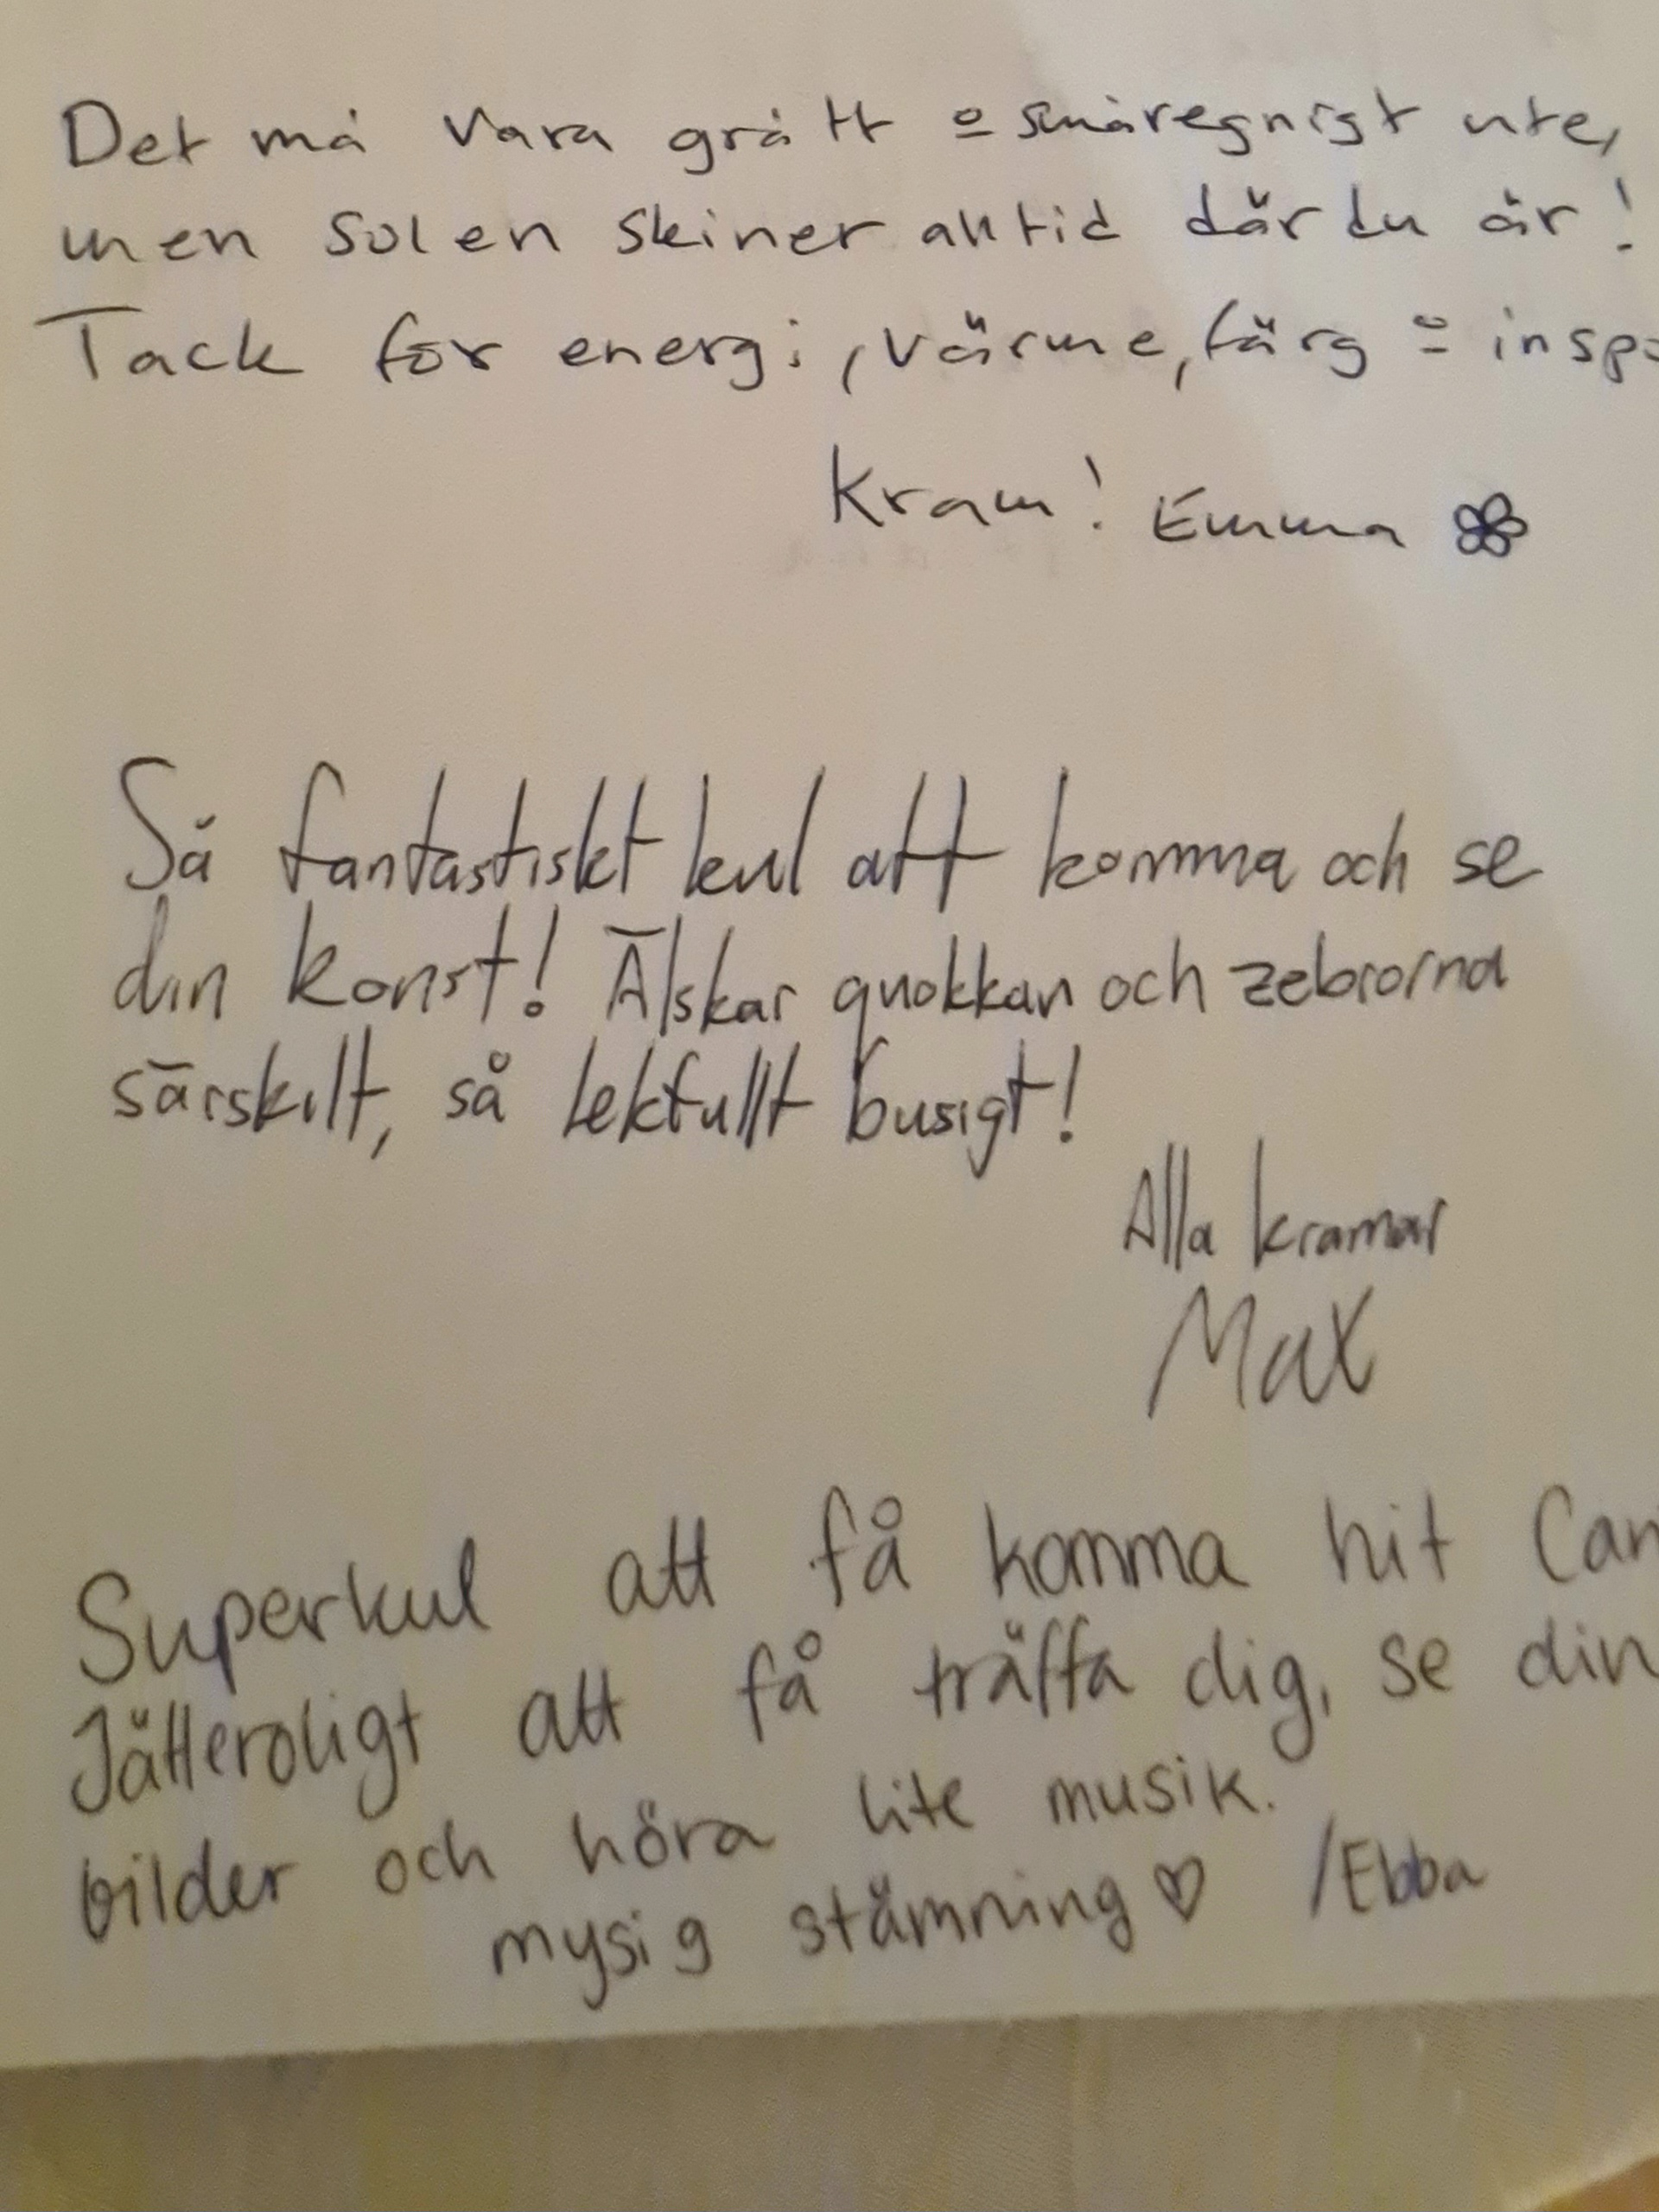 Det må vara grått o småregnigt ute,
men solen skiner alltid där du är!
Tack för energi, värme, färg o insp
Kram! Emma
Så fantastiskt kul att komma och se
din konst! Älskar quokkan och zebrorna
särskilt, så lekfullt busigt!
Alla kramar
Max
Superkul att få komma hit Cam
Jätteroligt att få träffa dig, se din
bilder och höra lite musik.
mysig stämning ♡ /Ebba